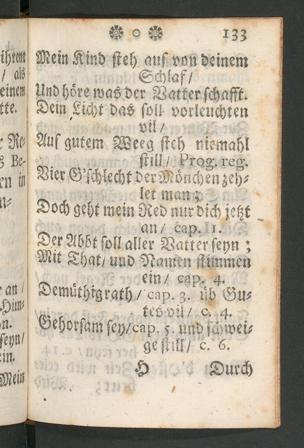 133
Mein Kind steh auf von deinem
Schlaf/
Und höre was der Vatter schafft.
Dein Licht das soll vorleuchten
vil/
Auf gutem Weeg steh niemahl
still/ Prog. reg.
Vier G'schlecht der Mönchen zeh-
let man;
Doch geht mein Red nur dich jetzt
an/ cap. 1.
Der Abbt soll aller Vatter seyn;
Mit That/ und Namen stimmen
ein/ cap. 4.
Demüthig rath/ cap. 3. üb Gu-
tes vil/ c. 4.
Gehorsam sey/ cap. 5. und schwei-
ge still/ c. 6.
H Durch
iheme
/ als
einem
tte.
Re-
s Be-
en in
n-
an/
Him-
n.
seyn/
ein.
Mein